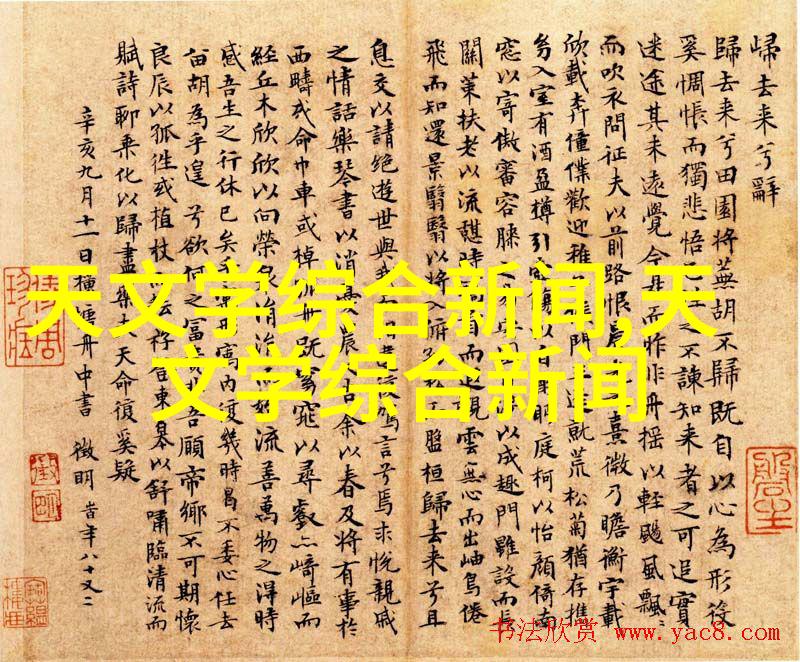 歸去来兮辭
歸去来兮田園將蕪胡不歸既自以心為形役
奚惆悵而獨悲悟已往之不諫知来者之可追實
迷途其未遠覺今是而昨非舟摇以輕颺風飄〻
而吹衣問征夫以前路恨晨熹微乃瞻衡宇載
欣載奔僮僕歡迎稚門三逕就荒松菊猶存携
幼入室有酒盈樽引壺觴以自眄庭柯以怡顔倚南
窓以寄傲審容膝之以成趣門雖設而長
關策扶老以流憩時首而遐觀雲無心而出岫鳥倦
飛而知還景翳翳以將入撫松盤桓歸去来兮且
息交以請絕遊世與我遺復駕言兮焉求悅親戚
之情話樂琴書以消憂農人告余以春及將有事於
西疇或命巾車或棹孤舟既窈窕以尋壑亦崎嶇而
經丘木欣欣以向榮泉涓涓而始流善萬物之得時
感吾生之行休已矣乎寓内復幾時曷不委心任去
畱胡為乎遑兮欲何之富貴吾願帝鄉不可期懷
良辰以孤往或植杖耘登東皋以舒嘯臨清流而
賦詩聊乘化以歸盡樂夫天命復奚疑
辛亥九月十一日橫塘舟中書 徵明 時年八十又二
天文学综合新闻,天
文学综合新闻
书法欣赏 www.yac8.com